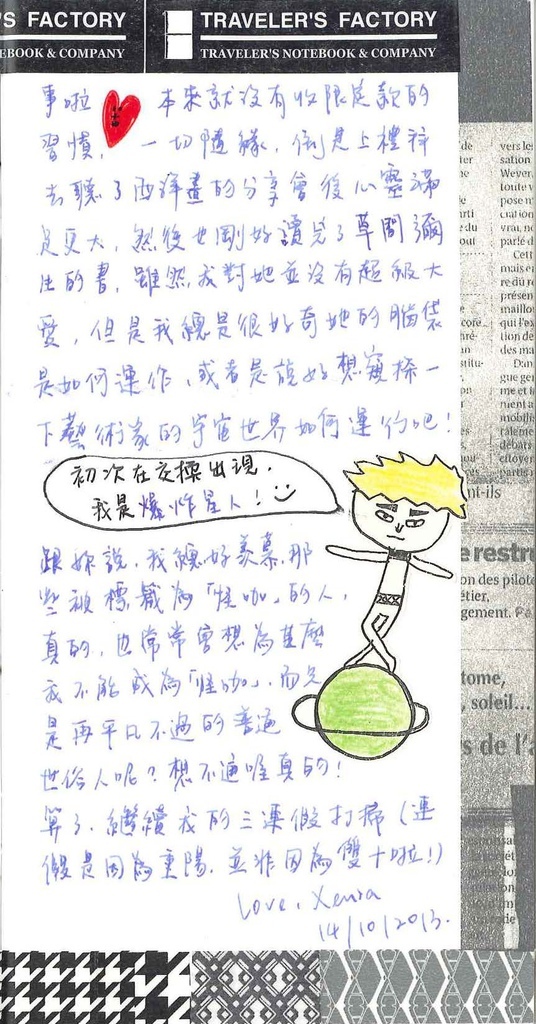 'S FACTORY
EBOOK & COMPANY
TRAVELER'S FACTORY
TRAVELER'S NOTEBOOK & COMPANY
事啦 本來就沒有收限定款的
習慣，一切隨緣，倒是上禮拜
去聽了西洋畫的分享會後心靈滿
足更大，然後也剛好讀完了草間彌
生的書，雖然我對她並沒有超級大
愛，但是我總是很好奇她的腦袋
是如何運作，或者是說好想窺探一
下藝術家的宇宙世界如何運行吧！
初次在交換出現，
我是爆炸星人！
跟妳說，我總好羨慕那
些被標籤為「怪咖」的人，
真的，也常常會想為甚麼
我不能成為「怪咖」，而只
是再平凡不過的普通
世俗人呢？想不通喔真的！
算了，繼續我的三連假打掃（連
假是因為重陽，並非因為雙十啦！）
Love, Xenia
14/10/2013.
de
ter
arti
du
out
core
ré-
stitu-
vers le
sation
Wever
toute v
pose n
ciation
vrai, no
parle d
Cett
mais e
re du r
présen
maillo
qui l'ex
tion de
des ma
Dan
gue ge
me et l
ment a
mobilie
raleme
débats
citoyer
parties
nt-ils
e restr
on des pilote
étier,
gement.
tome,
, soleil...
s de l'a